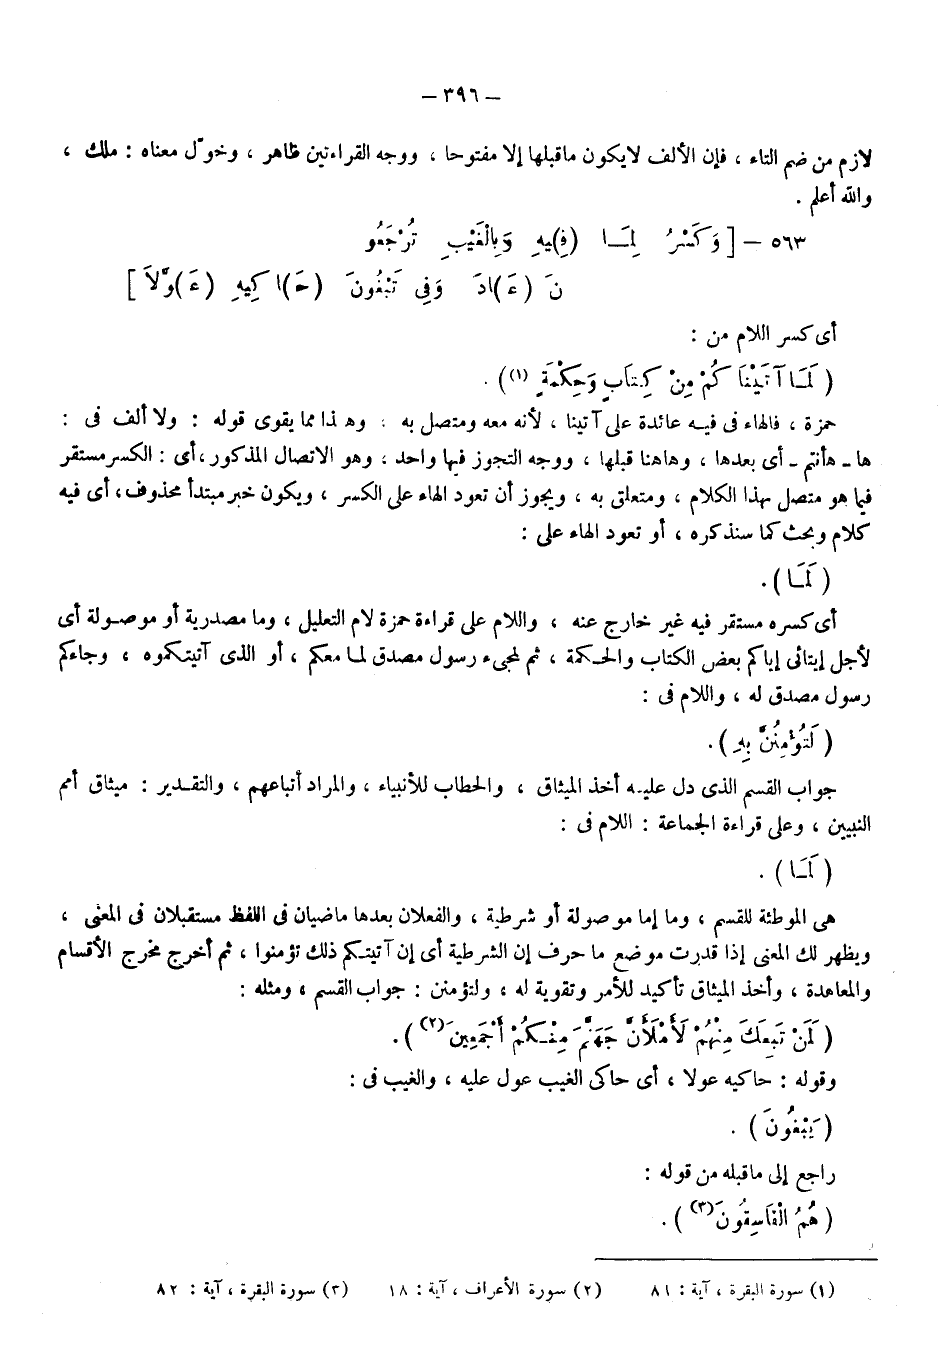 — ٣٩٦ —
لازم من ضم التاء ، فإن الألف لايكون ماقبلها إلا مفتوحا ، ووجه القراءتين ظاهر ، وخوّل معناه : ملك ،
والله أعلم .
٥٦٣ — [ وَكَسْرُ لِمَا (فِ)يهِ وَبِالْغَيْبِ تُرْجَعُو
نَ (عَ)ادَ وَفِى تَبْغُونَ (حَ)اكِيهِ (عَ)وَّلَا ]
أى كسر اللام من :
( لَمَا آتَيْنَا كُمْ مِنْ كِتَابٍ وَحِكْمَةٍ (١) ) .
حمزة ، فالهاء فى فيه عائدة على آتينا ، لأنه معه ومتصل به ، وهذا مما يقوى قوله : ولا ألف فى :
ها ـ هأنتم ـ أى بعدها ، وهاهنا قبلها ، ووجه التجوز فيها واحد ، وهو الاتصال المذكور ، أى : الكسر مستقر
فيما هو متصل بهذا الكلام ، ومتعلق به ، ويجوز أن تعود الهاء على الكسر ، ويكون خبر مبتدأ محذوف ، أى فيه
كلام وبحث كما سنذكره ، أو تعود الهاء على :
( لَمَا ) .
أى كسره مستقر فيه غير خارج عنه ، واللام على قراءة حمزة لام التعليل ، وما مصدرية أو موصولة أى
لأجل إيتائى إياكم بعض الكتاب والحكمة ، ثم لمجىء رسول مصدق لما معكم ، أو الذى آتيتكموه ، وجاءكم
رسول مصدق له ، واللام فى :
( لَتُؤْمِنُنَّ بِهِ ) .
جواب القسم الذى دل عليه أخذ الميثاق ، والخطاب للأنبياء ، والمراد أتباعهم ، والتقدير : ميثاق أمم
النبيين ، وعلى قراءة الجماعة : اللام فى :
( لَمَا ) .
هى الموطئة للقسم ، وما إما موصولة أو شرطية ، والفعلان بعدها ماضيان فى اللفظ مستقبلان فى المعنى ،
ويظهر لك المعنى إذا قدرت موضع ما حرف إن الشرطية أى إن آتيتكم ذلك تؤمنوا ، ثم أخرج مخرج الأقسام
والمعاهدة ، وأخذ الميثاق تأكيد للأمر وتقوية له ، ولتؤمنن : جواب القسم ، ومثله :
( لَمَنْ تَبِعَكَ مِنْهُمْ لَأَمْلَأَنَّ جَهَنَّمَ مِنْكُمْ أَجْمَعِينَ (٢) ) .
وقوله : حاكيه عولا ، أى حاكى الغيب عول عليه ، والغيب فى :
( يَبْغُونَ ) .
راجع إلى ماقبله من قوله :
( هُمُ الْفَاسِقُونَ (٣) ) .
(١) سورة البقرة ، آية : ٨١ (٢) سورة الأعراف ، آية : ١٨ (٣) سورة البقرة ، آية : ٨٢